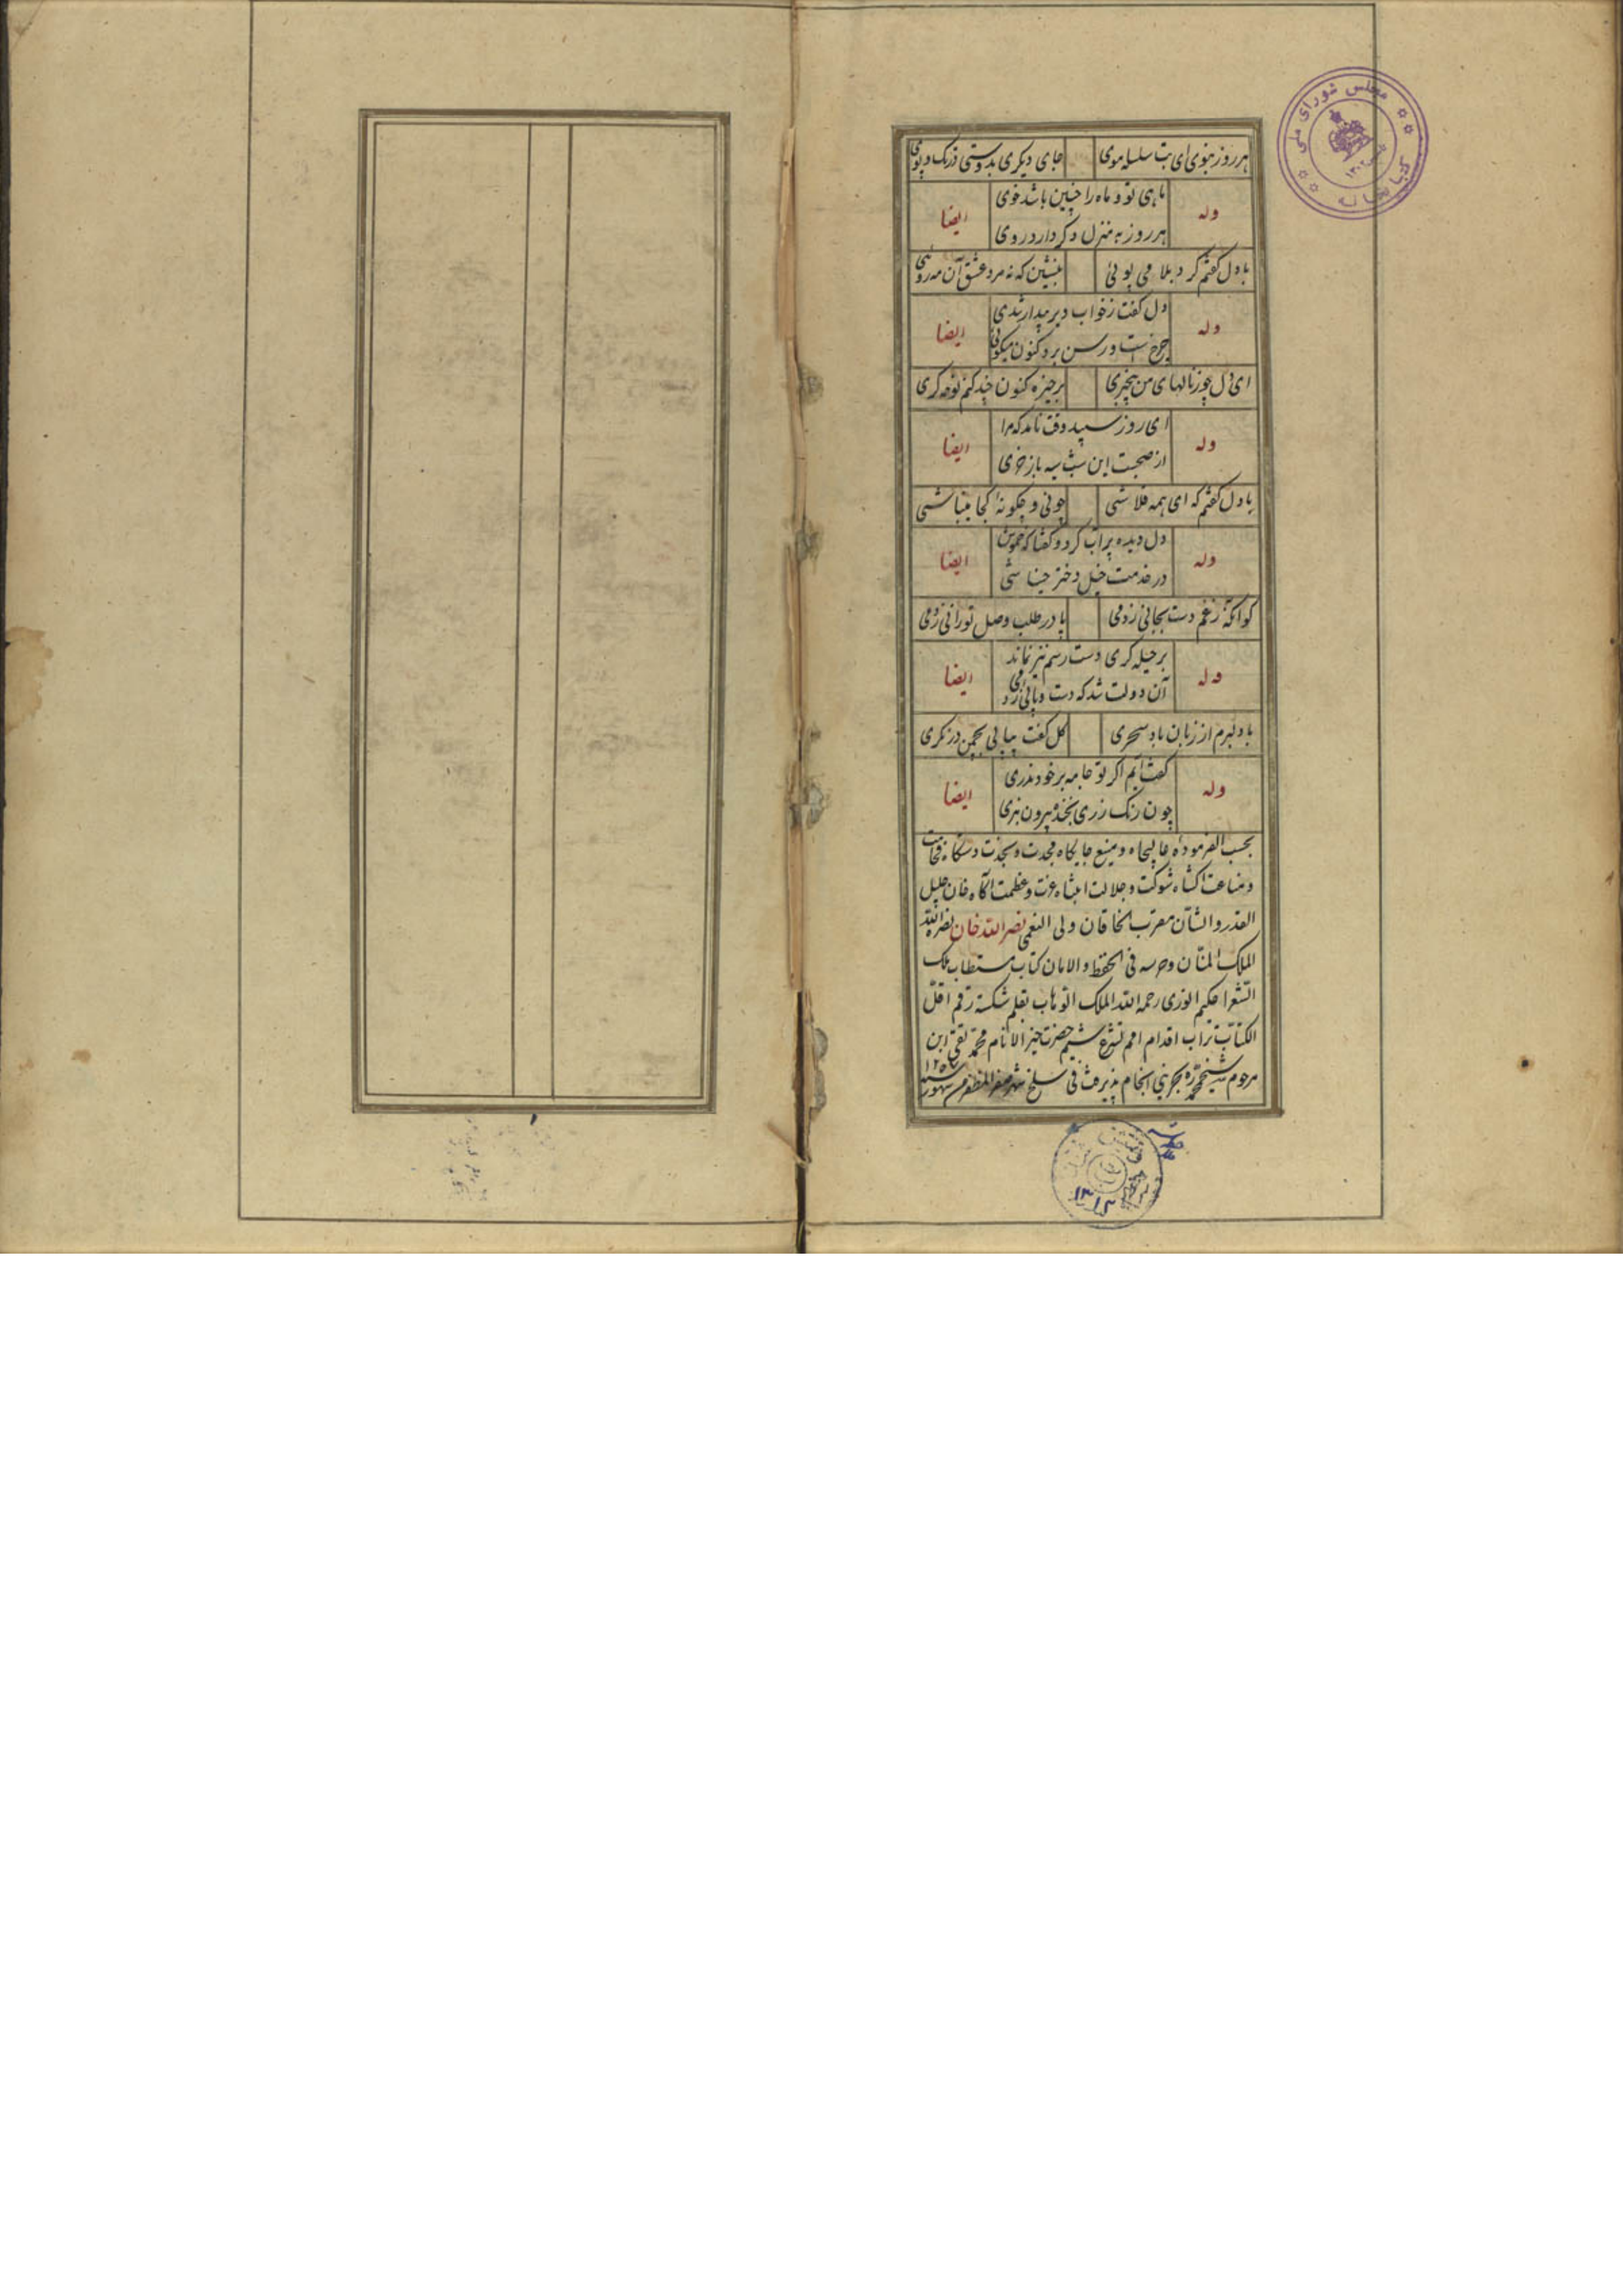 هر روز بنوی ای بت سلسله موی
جای دیگری بدوستی در تک و پوی
وله
ماهی تو و ماه را چنین باشد خوی
ایضا
هر روز به منزل دگر دارد روی
با دل گفتم گرد بلا می پوئی
بنشین که نه مرد عشق آن مه روئی
وله
دل گفت ز خواب دیر بیدار شدی
ایضا
چرخ است و رسن برد کنون میگوئی
ای دل چو ز نالهای من بیخبری
برخیزه کنون چند کنم نوحه گری
وله
ای روز سپید وقت نامد که مرا
ایضا
از صحبت این شب سیه بازخری
با دل گفتم که ای همه قلاشی
چونی و چگونه کجا میباشی
وله
دل دیده پر آب کرد و گفتا که خموش
ایضا
در خدمت خیل دختر خباشی
کو آنکه ز غم دست بجائی زدمی
پا در طلب وصل تو رائی زدمی
وله
بر حیله گری دست رسم نیز نماند
ایضا
آن دولت شد که دست و پائی زدمی
با دلبرم از زبان باد سحری
گل گفت بیا بی بچمن در نگری
وله
گفت آیم اگر تو جامه بر خود ندری
ایضا
چون رنک رزی بخنده بیرون نبری
بحسب الفرموده عالیجاه و منیع جایگاه مجدت و نجدت دستگاه فخامت
و مناعت اکتناه شوکت و جلالت انتباه عزت و عظمت آگاه خان جلیل
القدر و الشأن مقرب الخاقان ولی النعمی نصر الله خان نصره الله
الملک المنان و حرسه فی الحفظ و الامان کتاب مستطاب ملک
الشعرا حکیم انوری رحمه الله الملک الوهاب بقلم شکسته رقم اقل
الکتاب تراب اقدام امم تشرع شیم حضرت خیر الانام محمد تقی ابن
مرحوم شیخ محمد بحرینی انجام پذیرفت فی سلخ شهر صفر المظفر من شهور سنه
مجلس شورای ملی
کتابخانه
۱۳۰۲
۱۳۱۲